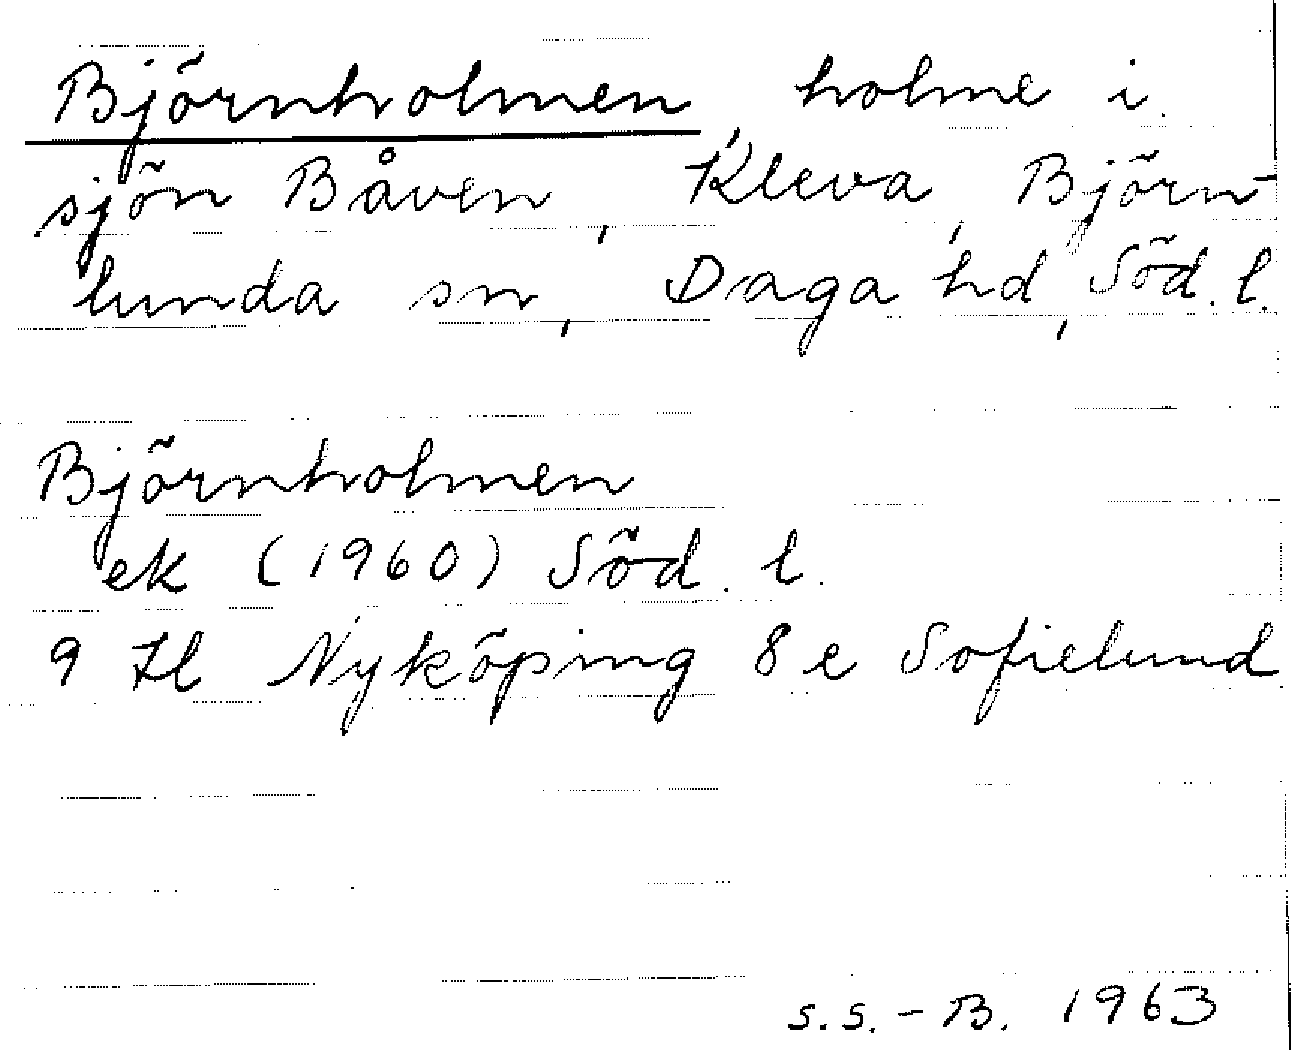 Björnholmen, holme i
sjön Båven, Kleva, Björn-
lunda sn, Daga hd, Söd. l.
Björnholmen
ek (1960) Söd. l.
9 H l Nyköping 8 e Sofielund
S.S.-B. 1963